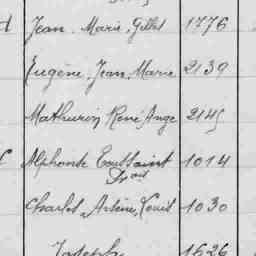 Jean, Marie, Gilles 1776
Eugène, Jean, Marie 2139
Mathurin, René, Ange 2145
Alphonse Toussaint 1014
Charles, Arsène, Louis 1030
Joseph 1626